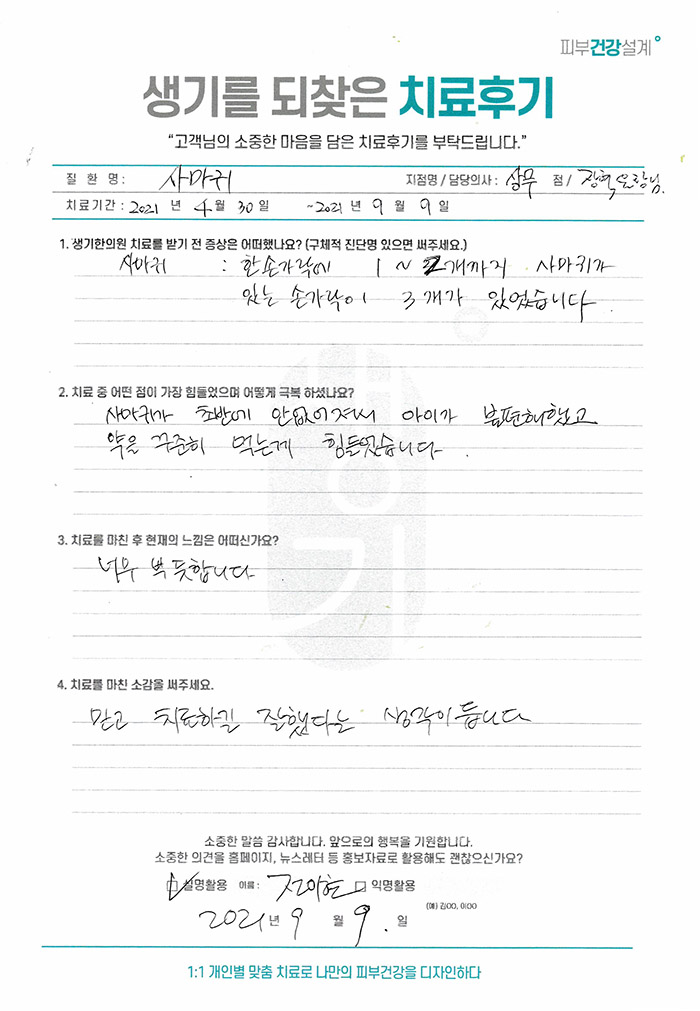 피부건강설계
생기를 되찾은 치료후기
“고객님의 소중한 마음을 담은 치료후기를 부탁드립니다.”
질 환 명 : 사마귀 지점명 / 담당의사 : 상무 점 / 장혁 원장님.
치료기간 : 2021 년 4 월 30 일 ~2021 년 9 월 9 일
1. 생기한의원 치료를 받기 전 증상은 어떠했나요? (구체적 진단명 있으면 써주세요.)
사마귀 : 한손가락에 1 ~ 2개까지 사마귀가
있는 손가락이 3개가 있었습니다
2. 치료 중 어떤 점이 가장 힘들었으며 어떻게 극복 하셨나요?
사마귀가 초반에 안없어져서 아이가 불편해했고
약을 꾸준히 먹는게 힘들었습니다.
3. 치료를 마친 후 현재의 느낌은 어떠신가요?
너무 뿌듯합니다
4. 치료를 마친 소감을 써주세요.
믿고 치료하길 잘했다는 생각이 듭니다
생기
소중한 말씀 감사합니다. 앞으로의 행복을 기원합니다.
소중한 의견을 홈페이지, 뉴스레터 등 홍보자료로 활용해도 괜찮으신가요?
실명활용 이름 : 익명활용
(예) 김OO, 이OO
2021 년 9 월 9. 일
1:1 개인별 맞춤 치료로 나만의 피부건강을 디자인하다